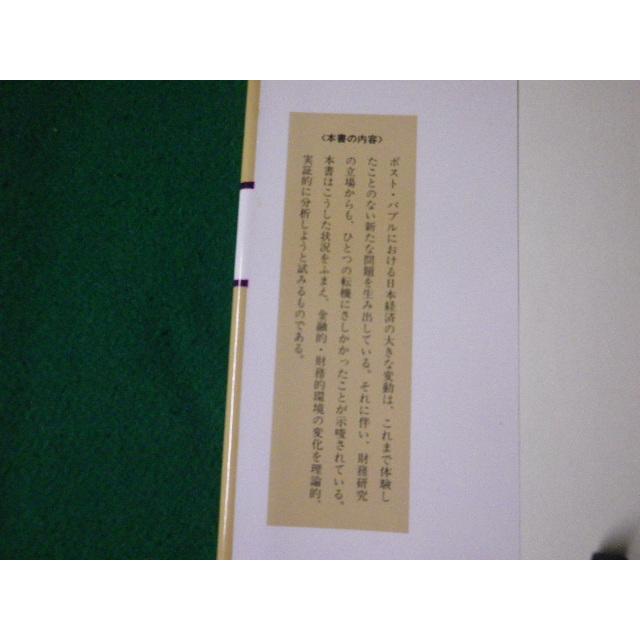 〈本書の内容〉
ポスト・バブルにおける日本経済の大きな変動は、これまで体験し
たことのない新たな問題を生み出している。それに伴い、財務研究
の立場からも、ひとつの転機にさしかかったことが示唆されている。
本書はこうした状況をふまえ、金融的・財務的環境の変化を理論的、
実証的に分析しようと試みるものである。